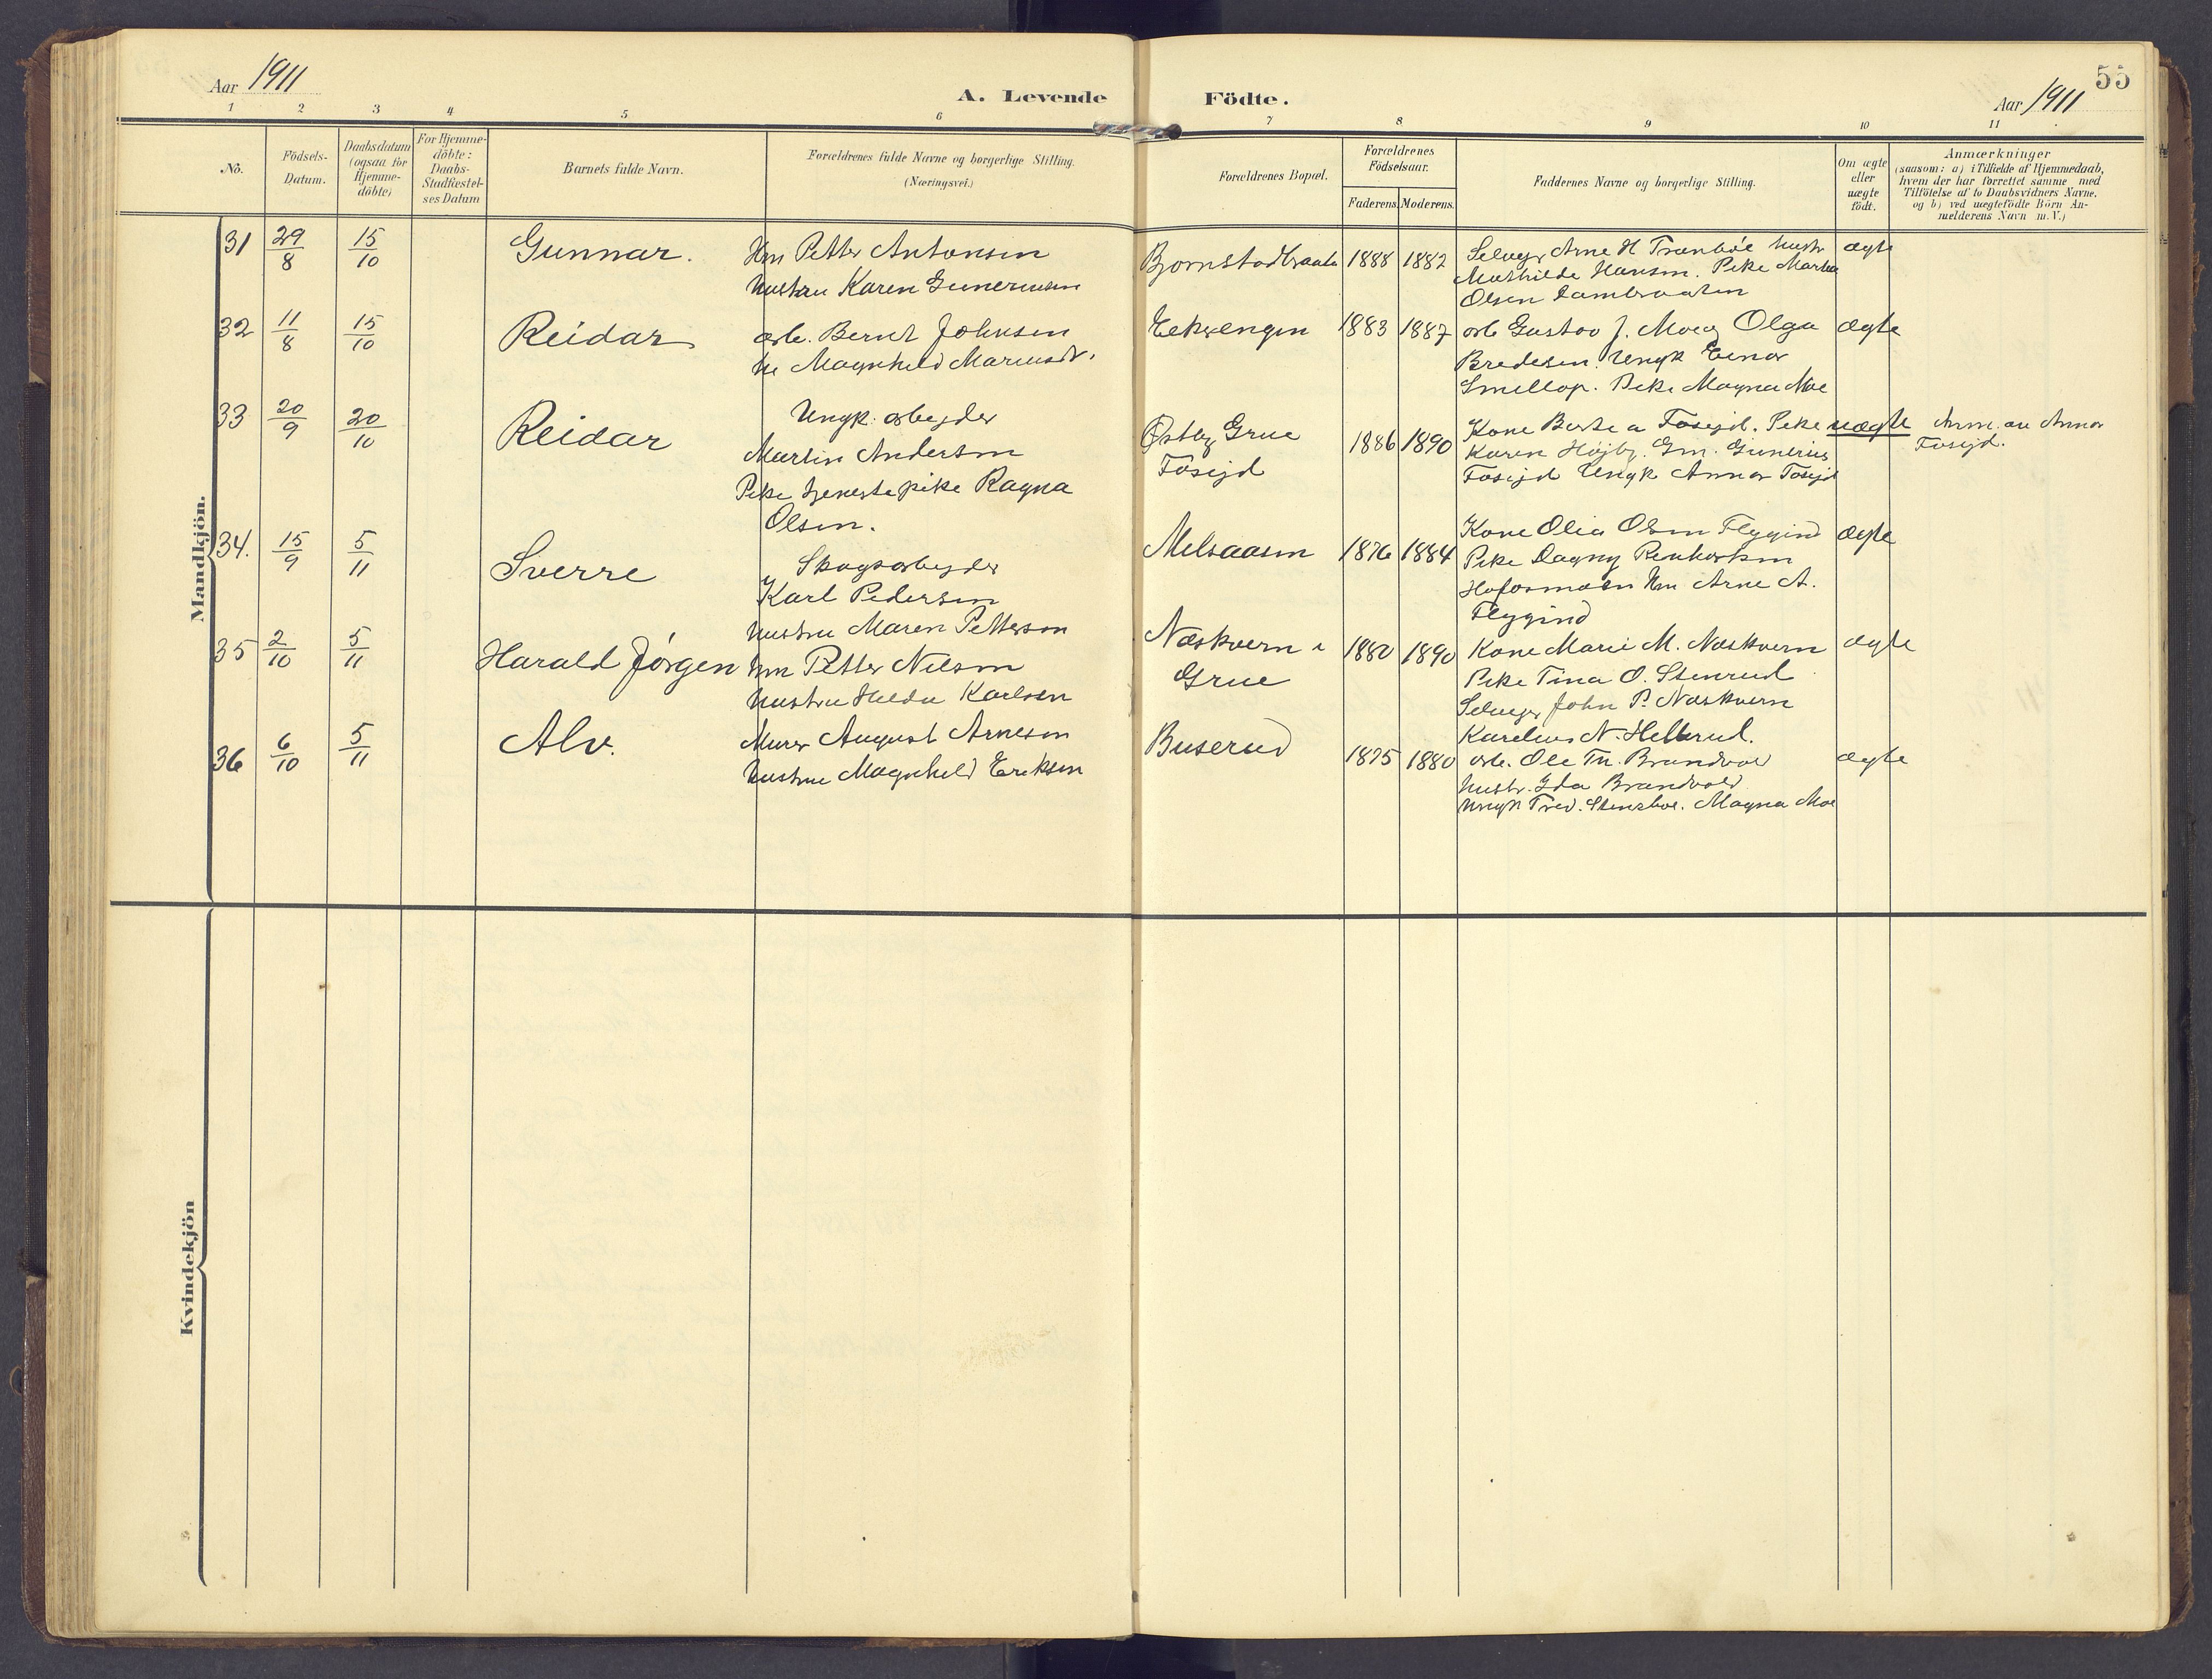 Aar 1911
A. Levende Födte.
Aar 1911
55
1 2 3 4 5 6 7 8 9 10 11
No.
Födsels-
Datum.
Daabsdatum
(ogsaa for
Hjemme-
döbte)
For Hjemme-
döbte:
Daabs-
Stadfæstel-
ses Datum
Barnets fulde Navn.
Forældrenes fulde Navne og borgerlige Stilling.
(Næringsvei.)
Forældrenes Bopæl.
Forældrenes
Födselsaar.
Faderens. Moderens.
Faddernes Navne og borgerlige Stilling.
Om ægte
eller
uægte
födt.
Anmærkninger
(saasom: a) i Tilfælde af Hjemmedaab,
hvem der har forrettet samme med
Tilföielse af to Daabsvidners Navne.
og b) ved uægtefödte Börn An-
melderens Navn m.V.)
Mandkjön.
31 29/8 15/10 Gunnar.
Hm Petter Antonsen
hustru Karen Guneriusen
Bjornstadbraate 1888 1882
Selveg Arne H Tranböl hustr
Mathilde Hansen. Pike Martha
Olsen
ægte
32 11/8 15/10 Reidar
arb. Bernt Johnsen
hu Magnhild Mariusdt.
Eeksengen 1883 1887
arb Gustav J. Moeg Olga
Bredesen Ungk Einar
Smellop. Pike Magna Moe
ægte
33 20/9 20/10 Reidar
Ungk. arbejder
Martin Andersen
Pike tjenestepike Ragna
Olsen.
Østby Grue
Tosejd
1886 1890
Kone Berte a Tosejd. Pike
Karen Højby. Gm. Gunerius
Tosejd Ungk Annar Tosejd
uægte
Anm. av Annar
Tosejd.
34. 15/9 5/11 Sverre
Skogsarbejder
Karl Pedersen
hustru Maren Petterson
Melsaasen 1876 1884
Kone Olia Olsen Flygind
Pike Dagny
Hofosmoen Hm Arne A.
Flygind
ægte
35 2/10 5/11 Harald Jörgen
hm Petter Nilsen
hustru Hilda Karlsen
Næskvern i
Grue
1880 1890
Kone Marie M. Næskvern
Pike Tina O. Stenrud
Selvejer John P. Næskvern
Karelius N. Helbrud.
ægte
36 6/10 5/11 Alv.
Murer August Arneson
hustru Magnhild Eriksen
Buserud 1875 1880
arb. Ole Th. Brandvol
hustr. Ida Brandvold
Ungk Fred. Magna Moe
ægte
Kvindekjön